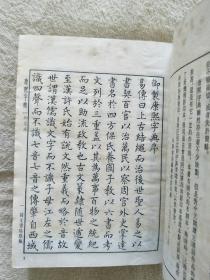 御製康熙字典序
易傳曰上古結繩而治後世聖人易之以
書契百官以治萬民以察周官外史掌達
書名於四方保氏養國子教以六書而考
文列於三重蓋以其為萬事百物之統紀
而足以助流政教也古文篆隸隨世遞變
至漢許氏始有說文然重義而略於音故
世謂漢儒識文字而不識子母江左之儒
識四聲而不識七音七音之傳肇自西域
康熙字典